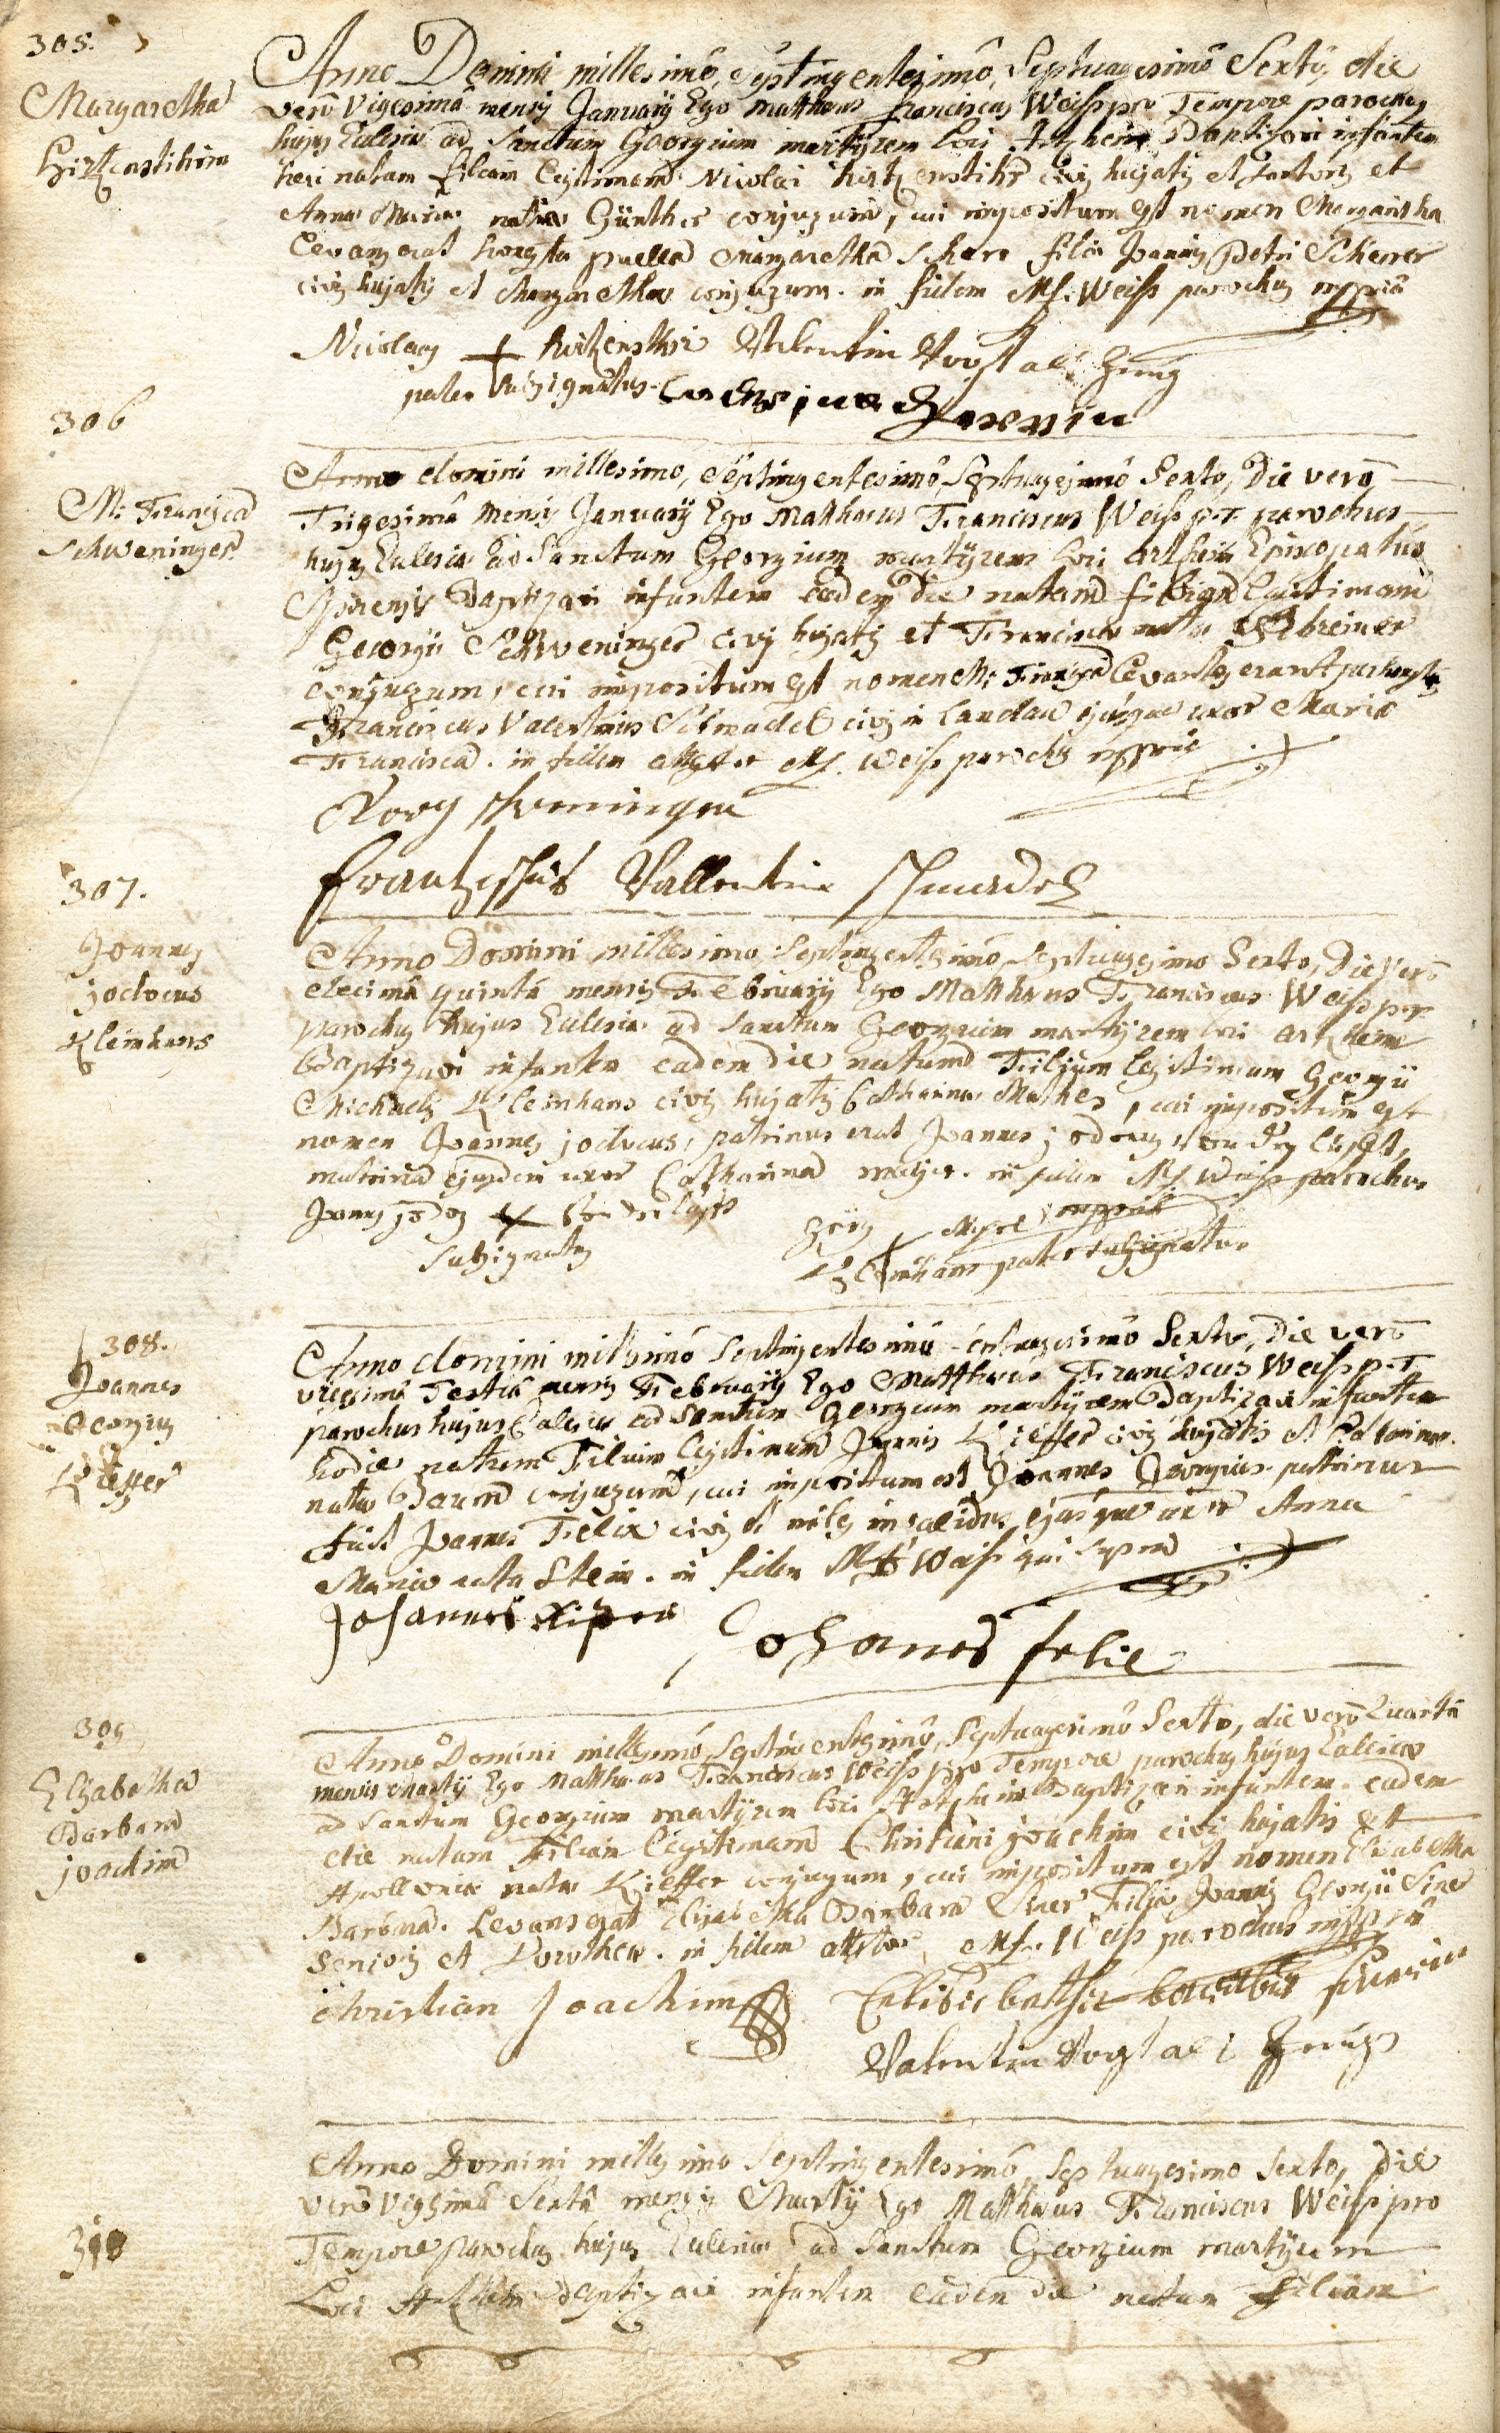 305.
Margaretha
Hirtzenstihrin
Anno Domini millesimô, septingentesimô, Septuagesimô Sextô, die
verô Vigesimâ mensis Januarÿ Ego Matthæus Franciscus Weiss pro Tempore parochus
hujus Eclesiæ ad Sanctum Georgium martÿrem loci Artzheim Baptizavi infantem
heri natam filiam Legitimam Nicolai hirtzenstihr civis hujatis et sartoris et
Annæ Mariæ natæ Günther conjugum, cui impositum est nomen Margaretha
Levans erat honesta puella Margaretha Scherr filia Joannis Petri Scherrer
civis hujatis et Margarethæ conjugum. in fidem Mf. Weiss parochus mppriâ
Nicolaus + hirtzenstihr Valentin Vogt alß Zeug
pater subsignatus.
306
M: Francisca
Schweninger
Anno domini millesimo, Septingentesimô, Septuagesimô Sexto, Die verô
Trigesimâ mensis Januarÿ Ego Matthæus Franciscus Weiss p.T. parochus
hujus Eclesiæ ad Sanctum Georgium martÿrem loci artzheim Episcopatus
Spirensis Baptizavi infantem eadem die natam filiam Legitimam
Georgii Schweninger civis hujatis et Franciscæ natæ
conjugum, cui impositum est nomen M: Francisca Levantes erant
Franciscus Valentinus Schmadel civis in Landau ejusque uxor Maria
Francisca. in fidem attestor Mf. Weiss parochus mppriâ
Görg schweninger
Frantziskus Vallentin schmadel
307.
Joannes
jodocus
Kleinhans
Anno Domini millesimo Septingentesimô, Septuagesimo Sexto, Die verô
decimâ quintâ mensis Februarÿ Ego Matthæus Franciscus Weiss p.T.
parochus hujus Eclesiæ ad Sanctum Georgium martÿrem loci artzheim
Baptizavi infantem eadem die natum Filium legitimum Georgii
Michaelis Kleinhans civis hujatis Catharinæ Mathes, cui impositum est
nomen Joannes jodocus, patrinus erat Joannes jodocus
matrina ejusdem uxor Catharina. in fidem Mf. Weiss parochus
mppriâ
Joannes jodoc +
subsignatus
Görg Michel
Kleinhans pater subsignatus
308.
Joannes
Georgius
Kieffer
Anno domini millesimô Septingentesimô Septuagesimô Sexto, Die verô
vigesimâ Tertiâ mensis Februarÿ Ego Matthæus Franciscus Weiss p.T.
parochus hujus Eclesiæ ad Sanctum Georgium martÿrem Baptizavi infantem
hodie natum Filium Legitimum Joannis Kieffer civis hujatis et Catharinæ
natæ Baum conjugum, cui impositum est Joannes Georgius. patrinus
fuit Joannes Felix civis et miles invalidus, ejusque uxor Anna
Maria nata Stein. in fidem Mf Weiss qui supra
Johannes
Johanes felix
309
Elisabetha
Barbara
joachim
Anno Domini millesimô, Septingentesimô, Septuagesimô Sexto, die verô Quartâ
mensis Martÿ Ego Matthæus Franciscus Weiss pro Tempore parochus hujus Eclesiæ
ad Sanctum Georgium martÿrem loci Artzheim Baptizavi infantem eadem
die natam Filiam Legitimam Christiani joachim civis hujatis et
Apolloniæ natæ Kieffer conjugum, cui impositum est nomen Elisabetha
Barbara. Levans erat Elisabetha Barbara Filia Joannis Georgii
Senioris et Dorotheæ. in fidem attestor, Mf. Weiss parochus mppriâ
christian Joachim
Valentin Vogt alß Zeug
310
Anno Domini millesimo Septingentesimô, Septuagesimo Sexto, Die
verô Vigesimâ Sextâ mensis Martÿ Ego Matthæus Franciscus Weiss pro
Tempore parochus hujus Eclesiæ ad Sanctum Georgium martÿrem
Loci Artzheim Baptizavi infantem eadem die natam Filiam